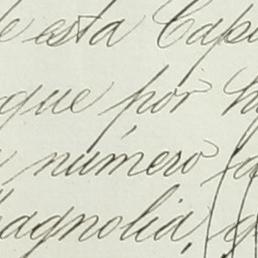 de esta Capi
que por h
número
Magnolia,